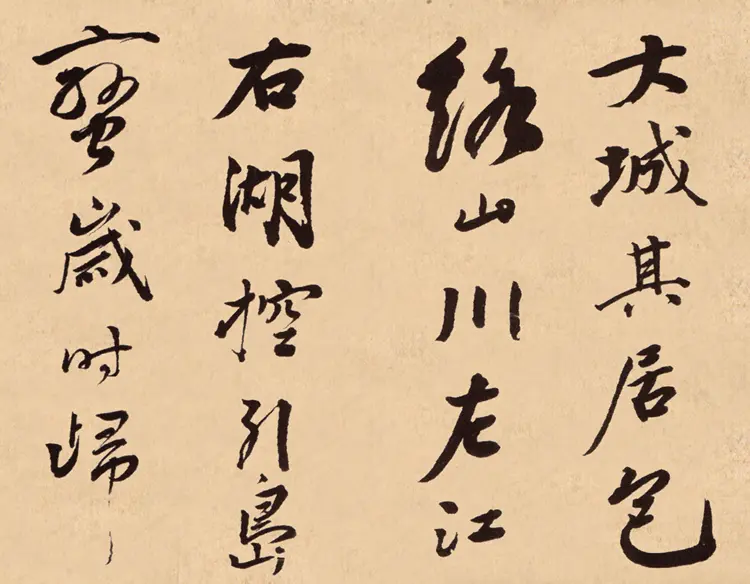 大城其居包
络山川左江
右湖控引島
蠻歲时歸